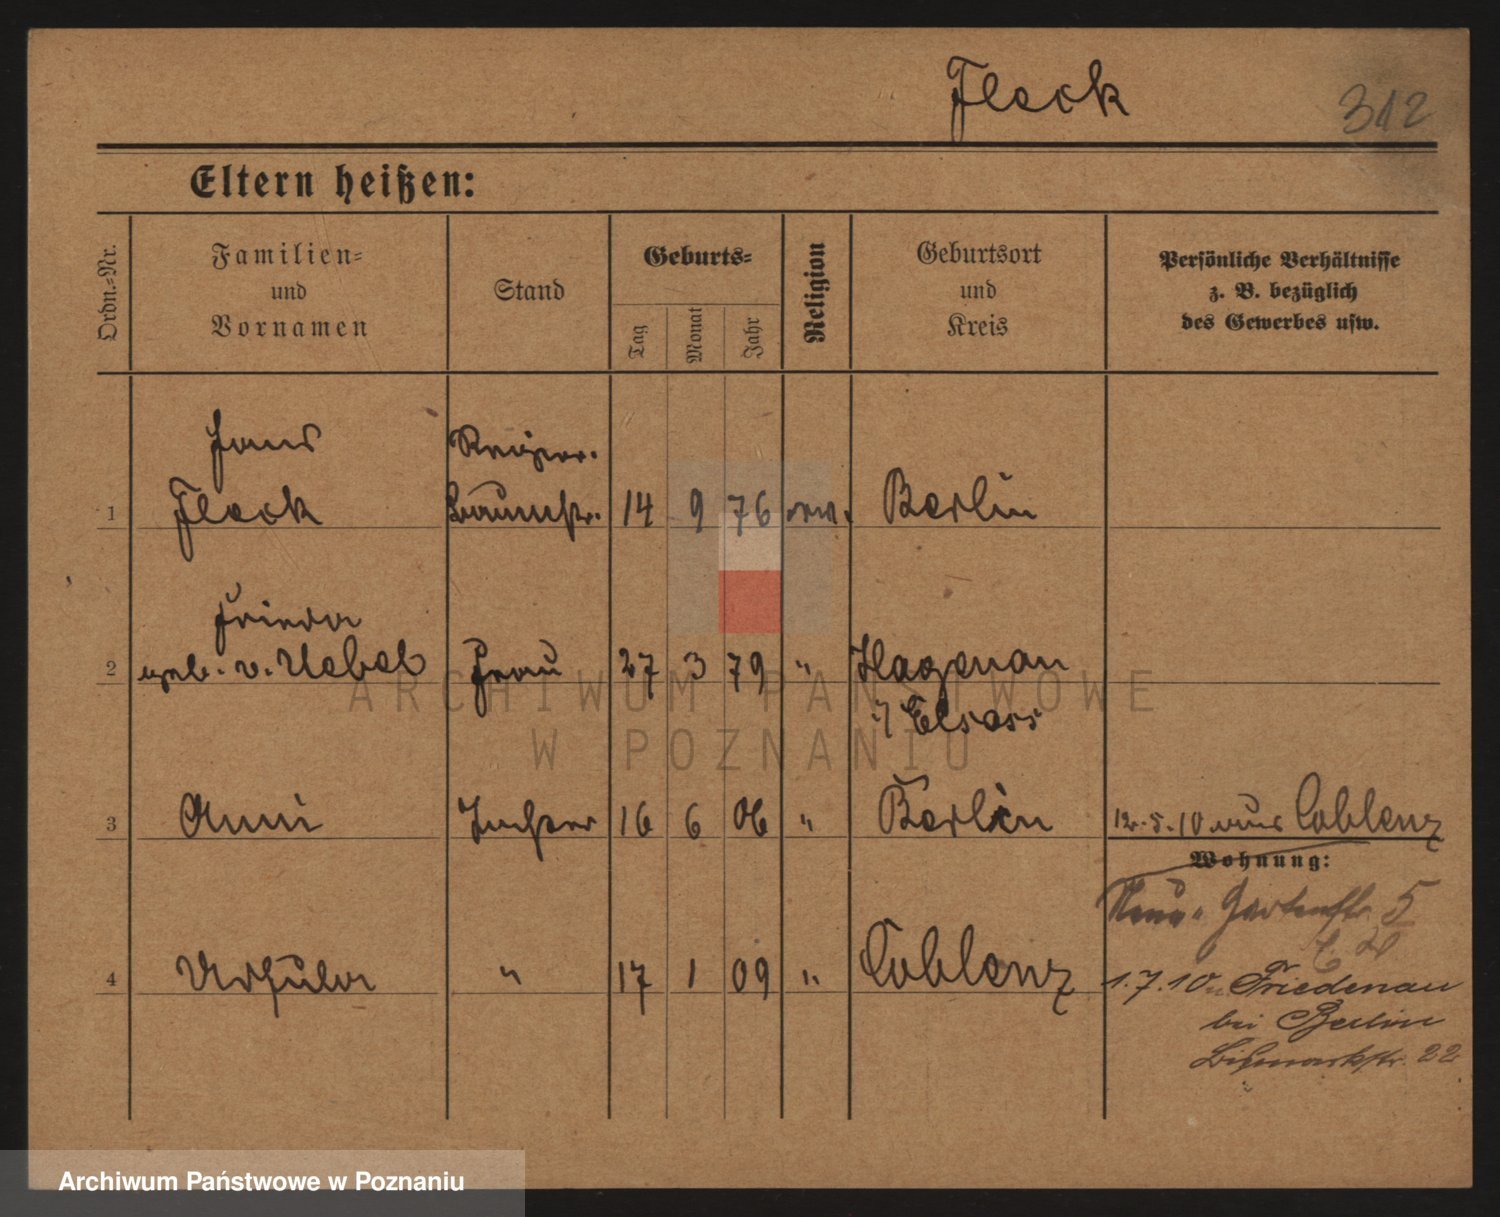 Fleck
312
Eltern heißen:
Ordn.-Nr.
Familien-
und
Vornamen
Stand
Geburts-
Tag
Monat
Jahr
Religion
Geburtsort
und
Kreis
Persönliche Verhältnisse
z. B. bezüglich
des Gewerbes usw.
Hans
1 Fleck Baumstr. 14 9 76 Berlin
Frieda
2 geb. v. Uebel Frau 27 3 79 " Hagenau
i/ Elsass
3 Anni Tochter 16 6 06 " Berlin 12.5.10 aus Coblenz
Wohnung:
Neue Gartenstr. 5
4 Ursula " 17 1 09 " Coblenz 1.7.10 n. Friedenau
bei Berlin
Bismarkstr. 22
ARCHIWUM PAŃSTWOWE
W POZNANIU
Archiwum Państwowe w Poznaniu